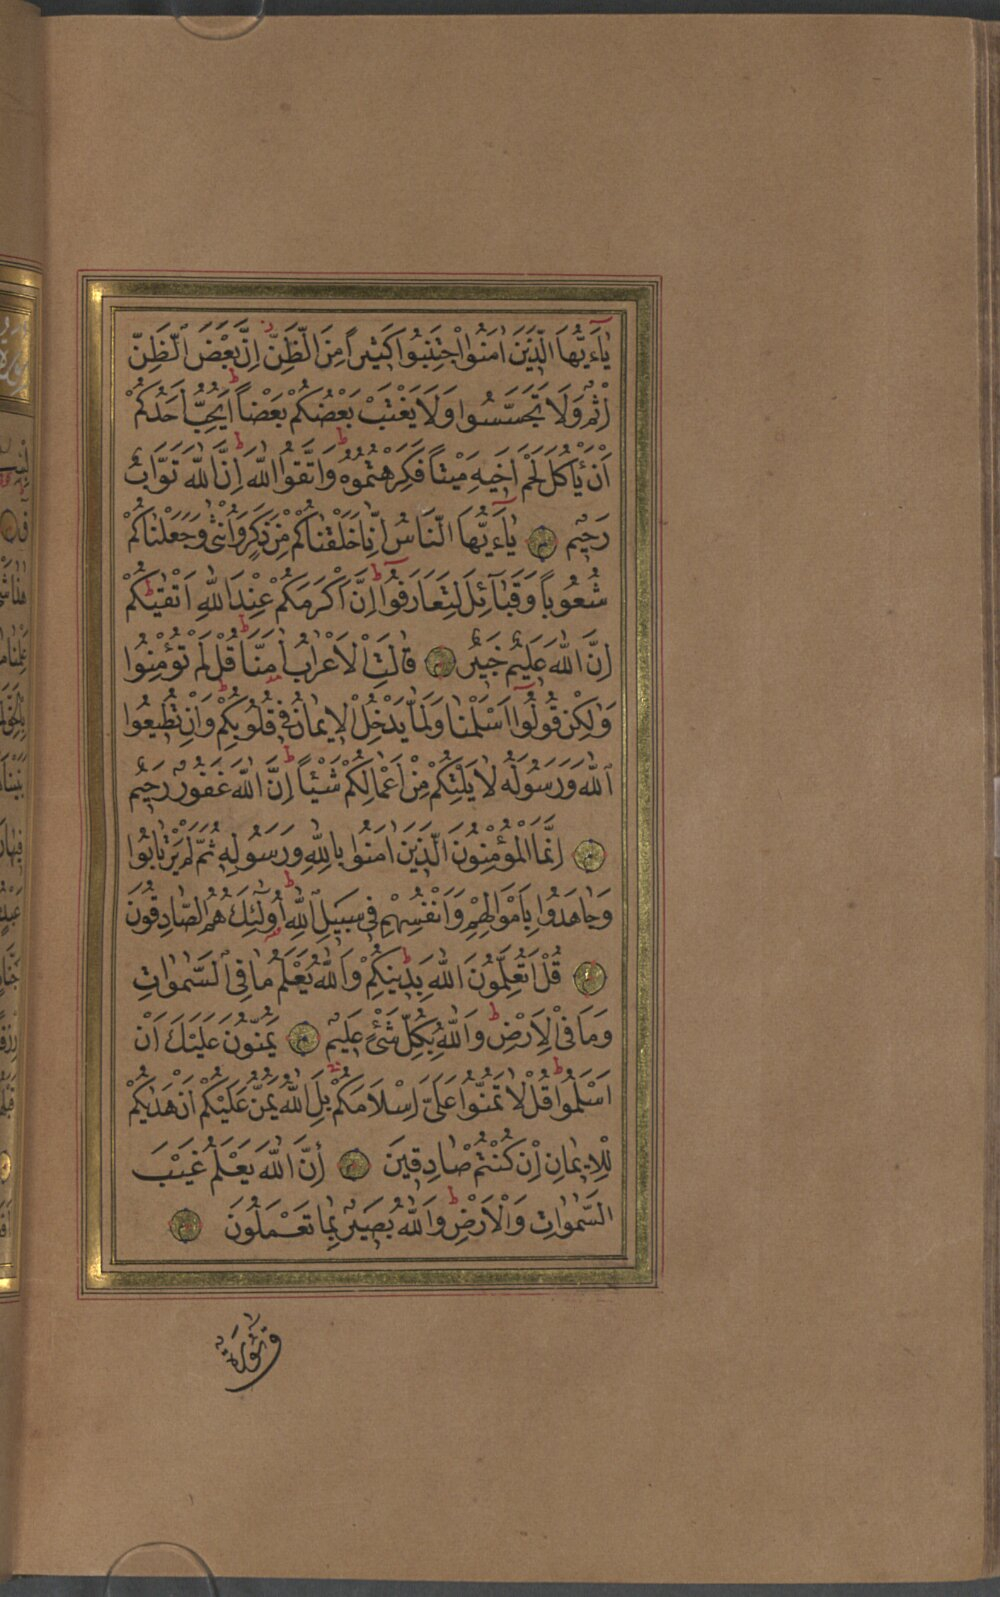 يَٓاءَيُّهَا الَّذِينَ اٰمَنُوا اجْتَنِبُوا كَثِيرًا مِنَ الظَّنِّ اِنَّ بَعْضَ الظَّنِّ
اِثْمٌ وَلَا تَجَسَّسُوا وَلَا يَغْتَبْ بَعْضُكُمْ بَعْضًا اَيُحِبُّ اَحَدُكُمْ
اَنْ يَأْكُلَ لَحْمَ اَخِيهِ مَيْتًا فَكَرِهْتُمُوهُ وَاتَّقُوا اللّٰهَ اِنَّ اللّٰهَ تَوَّابٌ
رَحِيمٌ يَٓاءَيُّهَا النَّاسُ اِنَّا خَلَقْنَاكُمْ مِنْ ذَكَرٍ وَاُنْثٰى وَجَعَلْنَاكُمْ
شُعُوبًا وَقَبَٓائِلَ لِتَعَارَفُوٓا اِنَّ اَكْرَمَكُمْ عِنْدَ اللّٰهِ اَتْقٰيكُمْ
اِنَّ اللّٰهَ عَلِيمٌ خَبِيرٌ قَالَتِ الْاَعْرَابُ اٰمَنَّا قُلْ لَمْ تُؤْمِنُوا
وَلٰكِنْ قُولُوٓا اَسْلَمْنَا وَلَمَّا يَدْخُلِ الْاِيمَانُ فِي قُلُوبِكُمْ وَاِنْ تُطِيعُوا
اللّٰهَ وَرَسُولَهُ لَا يَلِتْكُمْ مِنْ اَعْمَالِكُمْ شَيْـًٔا اِنَّ اللّٰهَ غَفُورٌ رَحِيمٌ
اِنَّمَا الْمُؤْمِنُونَ الَّذِينَ اٰمَنُوا بِاللّٰهِ وَرَسُولِهِ ثُمَّ لَمْ يَرْتَابُوا
وَجَاهَدُوا بِاَمْوَالِهِمْ وَاَنْفُسِهِمْ فِي سَبِيلِ اللّٰهِ اُولٰٓئِكَ هُمُ الصَّادِقُونَ
قُلْ اَتُعَلِّمُونَ اللّٰهَ بِدِينِكُمْ وَاللّٰهُ يَعْلَمُ مَا فِي السَّمٰوَاتِ
وَمَا فِي الْاَرْضِ وَاللّٰهُ بِكُلِّ شَيْءٍ عَلِيمٌ يَمُنُّونَ عَلَيْكَ اَنْ
اَسْلَمُوا قُلْ لَا تَمُنُّوا عَلَيَّ اِسْلَامَكُمْ بَلِ اللّٰهُ يَمُنُّ عَلَيْكُمْ اَنْ هَدٰيكُمْ
لِلْاِيمَانِ اِنْ كُنْتُمْ صَادِقِينَ اِنَّ اللّٰهَ يَعْلَمُ غَيْبَ
السَّمٰوَاتِ وَالْاَرْضِ وَاللّٰهُ بَصِيرٌ بِمَا تَعْمَلُونَ